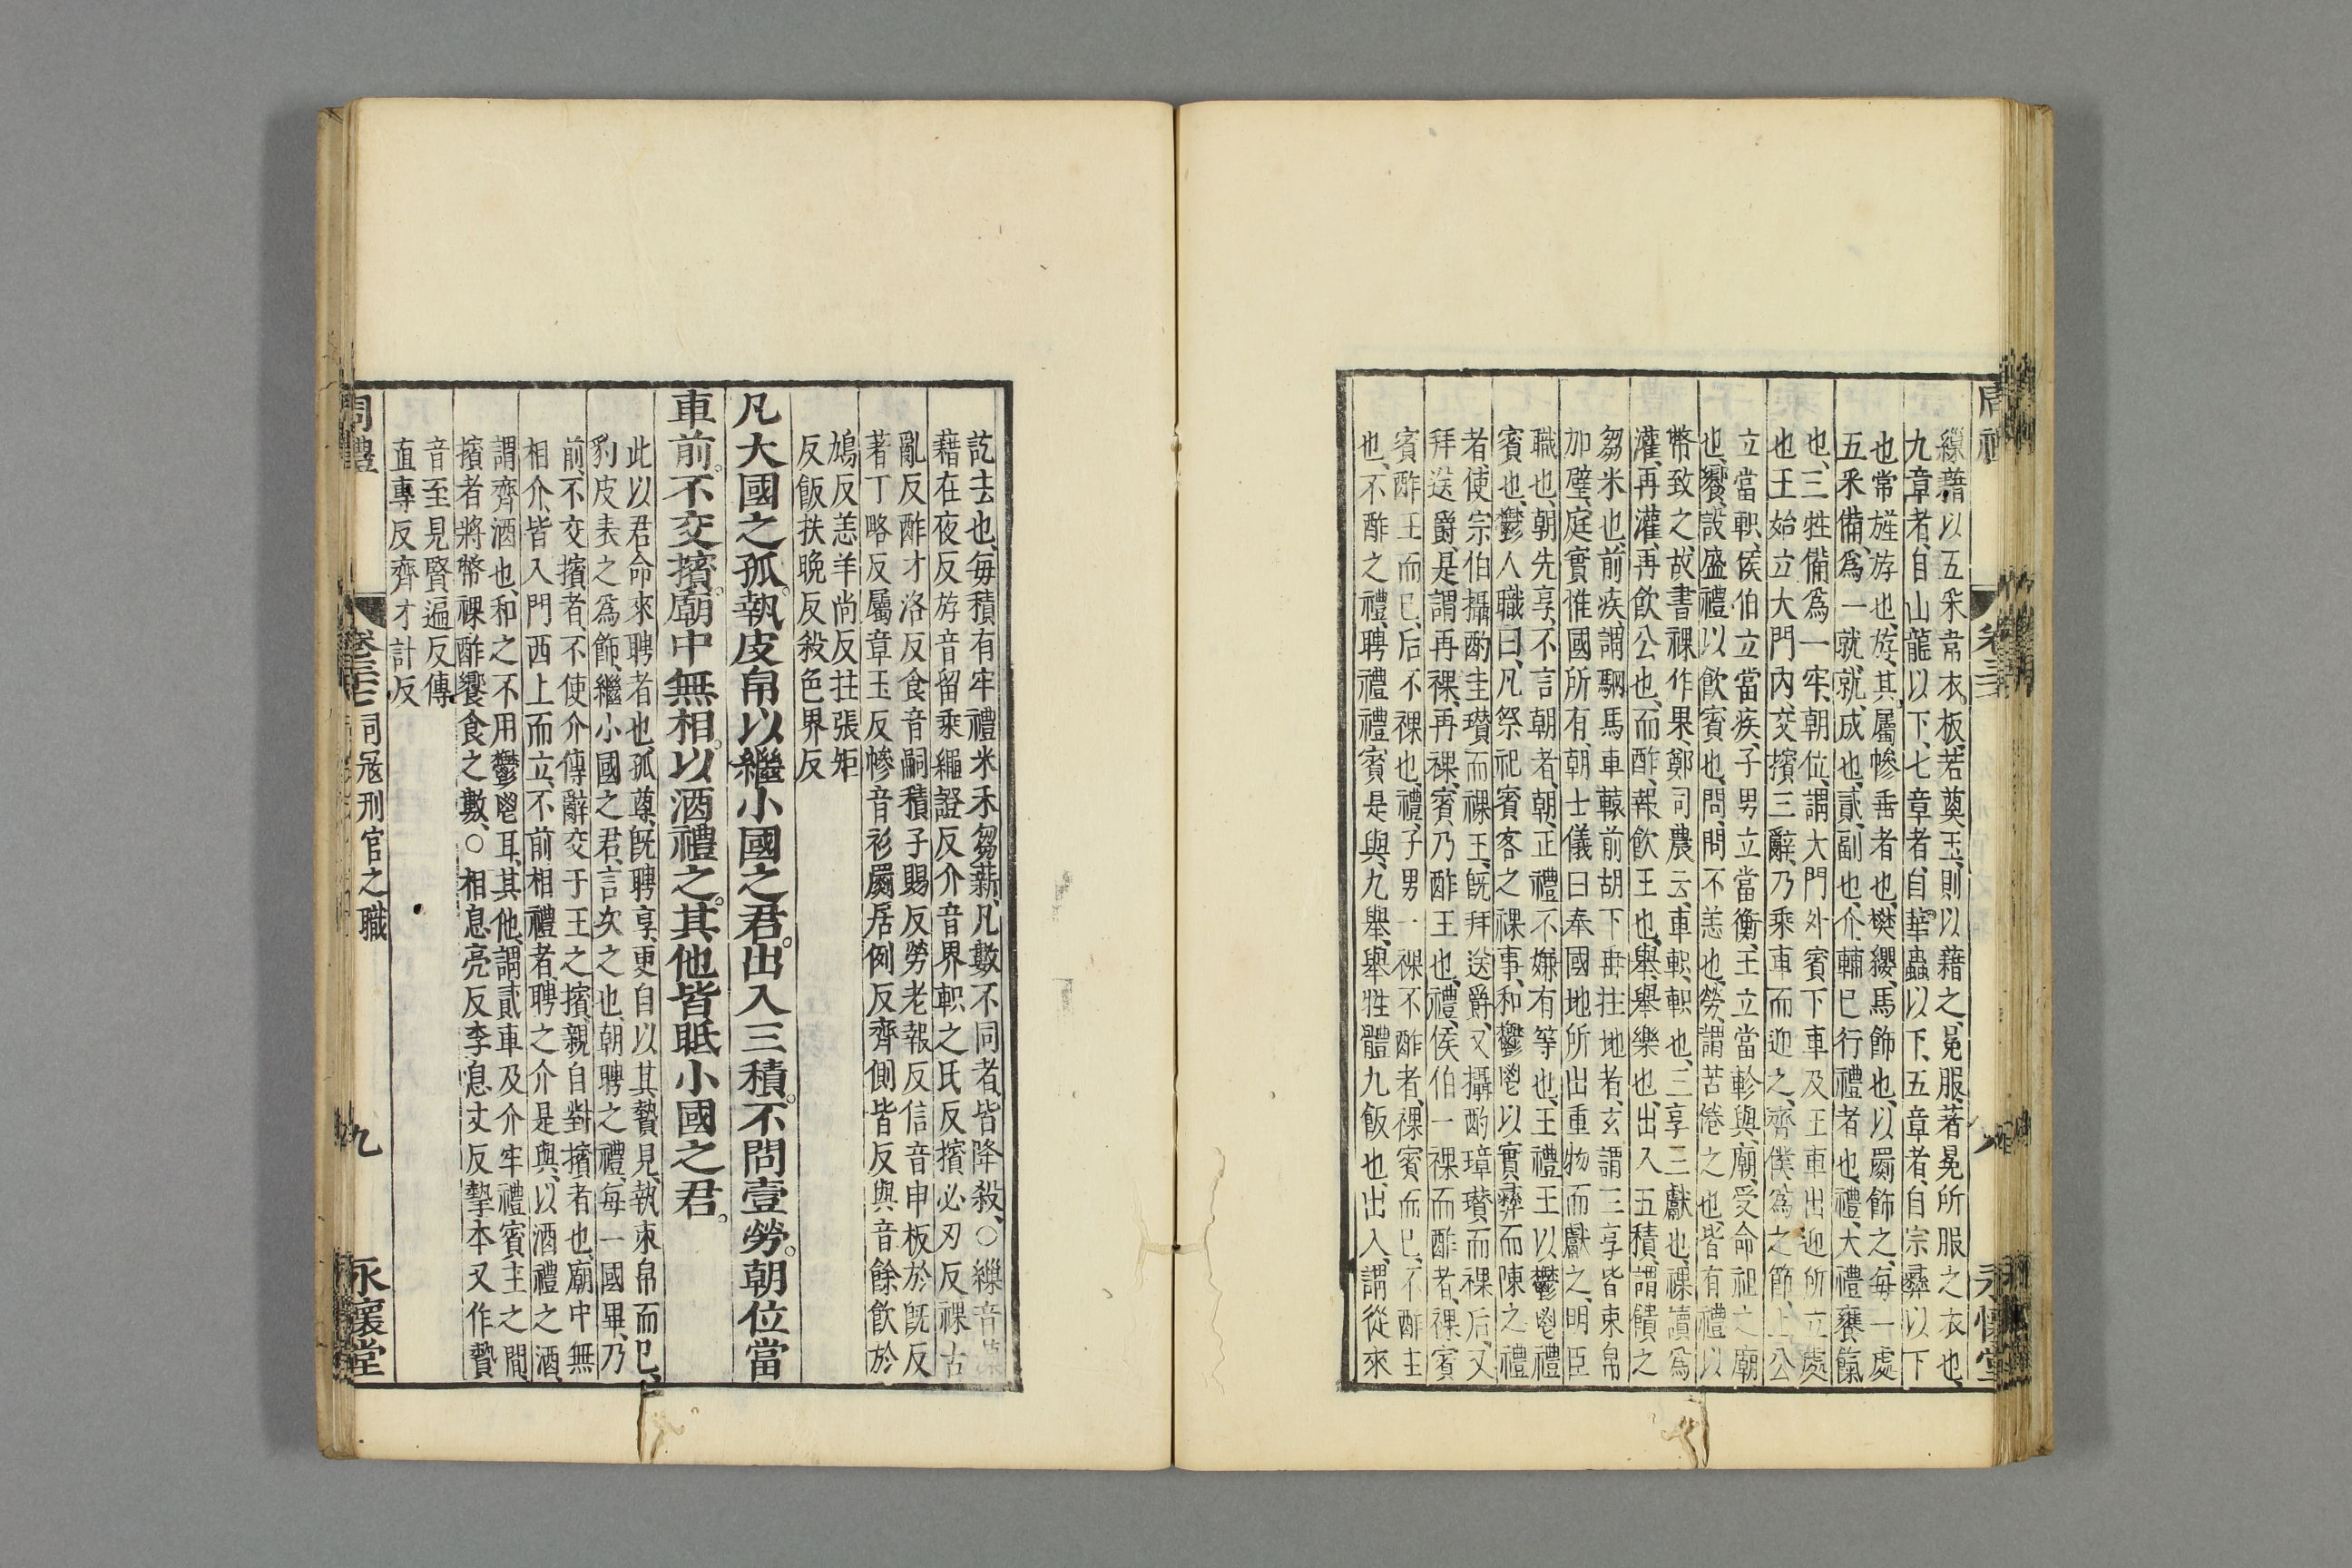 繅藉以五采韋衣板若奠玉則以藉之冕服著冕所服之衣也
九章者自山龍以下七章者自華蟲以下五章者自宗彝以下
也常旌斿也斿其屬幓垂者也樊纓馬飾也以罽飾之每一處
五采備爲一就就成也貳副也介輔已行禮者也禮大禮饔餼
也三牲備爲一牢朝位謂大門外賓下車及王車出迎所立處
也王始立大門內交擯三辭乃乘車而迎之齊僕爲之節上公
立當軹侯伯立當疾子男立當衡王立當軫與廟受命祖之廟
也饗設盛禮以飲賓也問問不恙也勞謂苦倦之也皆有禮以
幣致之故書祼作果鄭司農云車軹軹也三享三獻也祼讀爲
灌再灌再飲公也而酢報飲王也舉舉樂也出入五積謂饋之
芻米也前疾謂駟馬車轅前胡下垂拄地者玄謂三享皆束帛
加璧庭實惟國所有朝士儀曰奉國地所出重物而獻之明臣
職也朝先享不言朝者朝正禮不嫌有等也王禮王以鬱鬯禮
賓也鬱人職曰凡祭祀賓客之祼事和鬱鬯以實彝而陳之禮
者使宗伯攝酌圭瓚而祼王既拜送爵又攝酌璋瓚而祼后又
拜送爵是謂再祼再祼賓乃酢王也禮侯伯一祼而酢者祼賓
賓酢王而已后不祼也禮子男一祼不酢者祼賓而已不酢王
也不酢之禮聘禮禮賓是與九舉舉牲體九飯也出入謂從來
訖去也每積有牢禮米禾芻薪凡數不同者皆降殺○繅音藻
藉在夜反斿音留乘繩證反介音界軹之氏反擯必刃反祼古
亂反酢才洛反食音嗣積子賜反勞老報反信音申板於旣反
著丁略反屬章玉反幓音衫罽居例反齊側皆反與音餘飲於
鴆反恙羊尚反拄張矩
反飯扶晚反殺色界反
凡大國之孤。執皮帛以繼小國之君。出入三積。不問壹勞。朝位當
車前。不交擯。廟中無相。以酒禮之。其他皆眡小國之君。
此以君命來聘者也孤尊旣聘享更自以其贄見執束帛而已
豹皮表之爲飾繼小國之君言次之也朝聘之禮每一國畢乃
前不交擯者不使介傳辭交于王之擯親自對擯者也廟中無
相介皆入門西上而立不前相禮者聘之介是與以酒禮之酒
謂齊酒也和之不用鬱鬯耳其他謂貳車及介牢禮賓主之間
擯者將幣祼酢饗食之數○相息亮反李息丈反摯本又作贄
音至見賢遍反傳
直專反齊才計反
周禮 卷三十七 司寇刑官之職 九 永懷堂